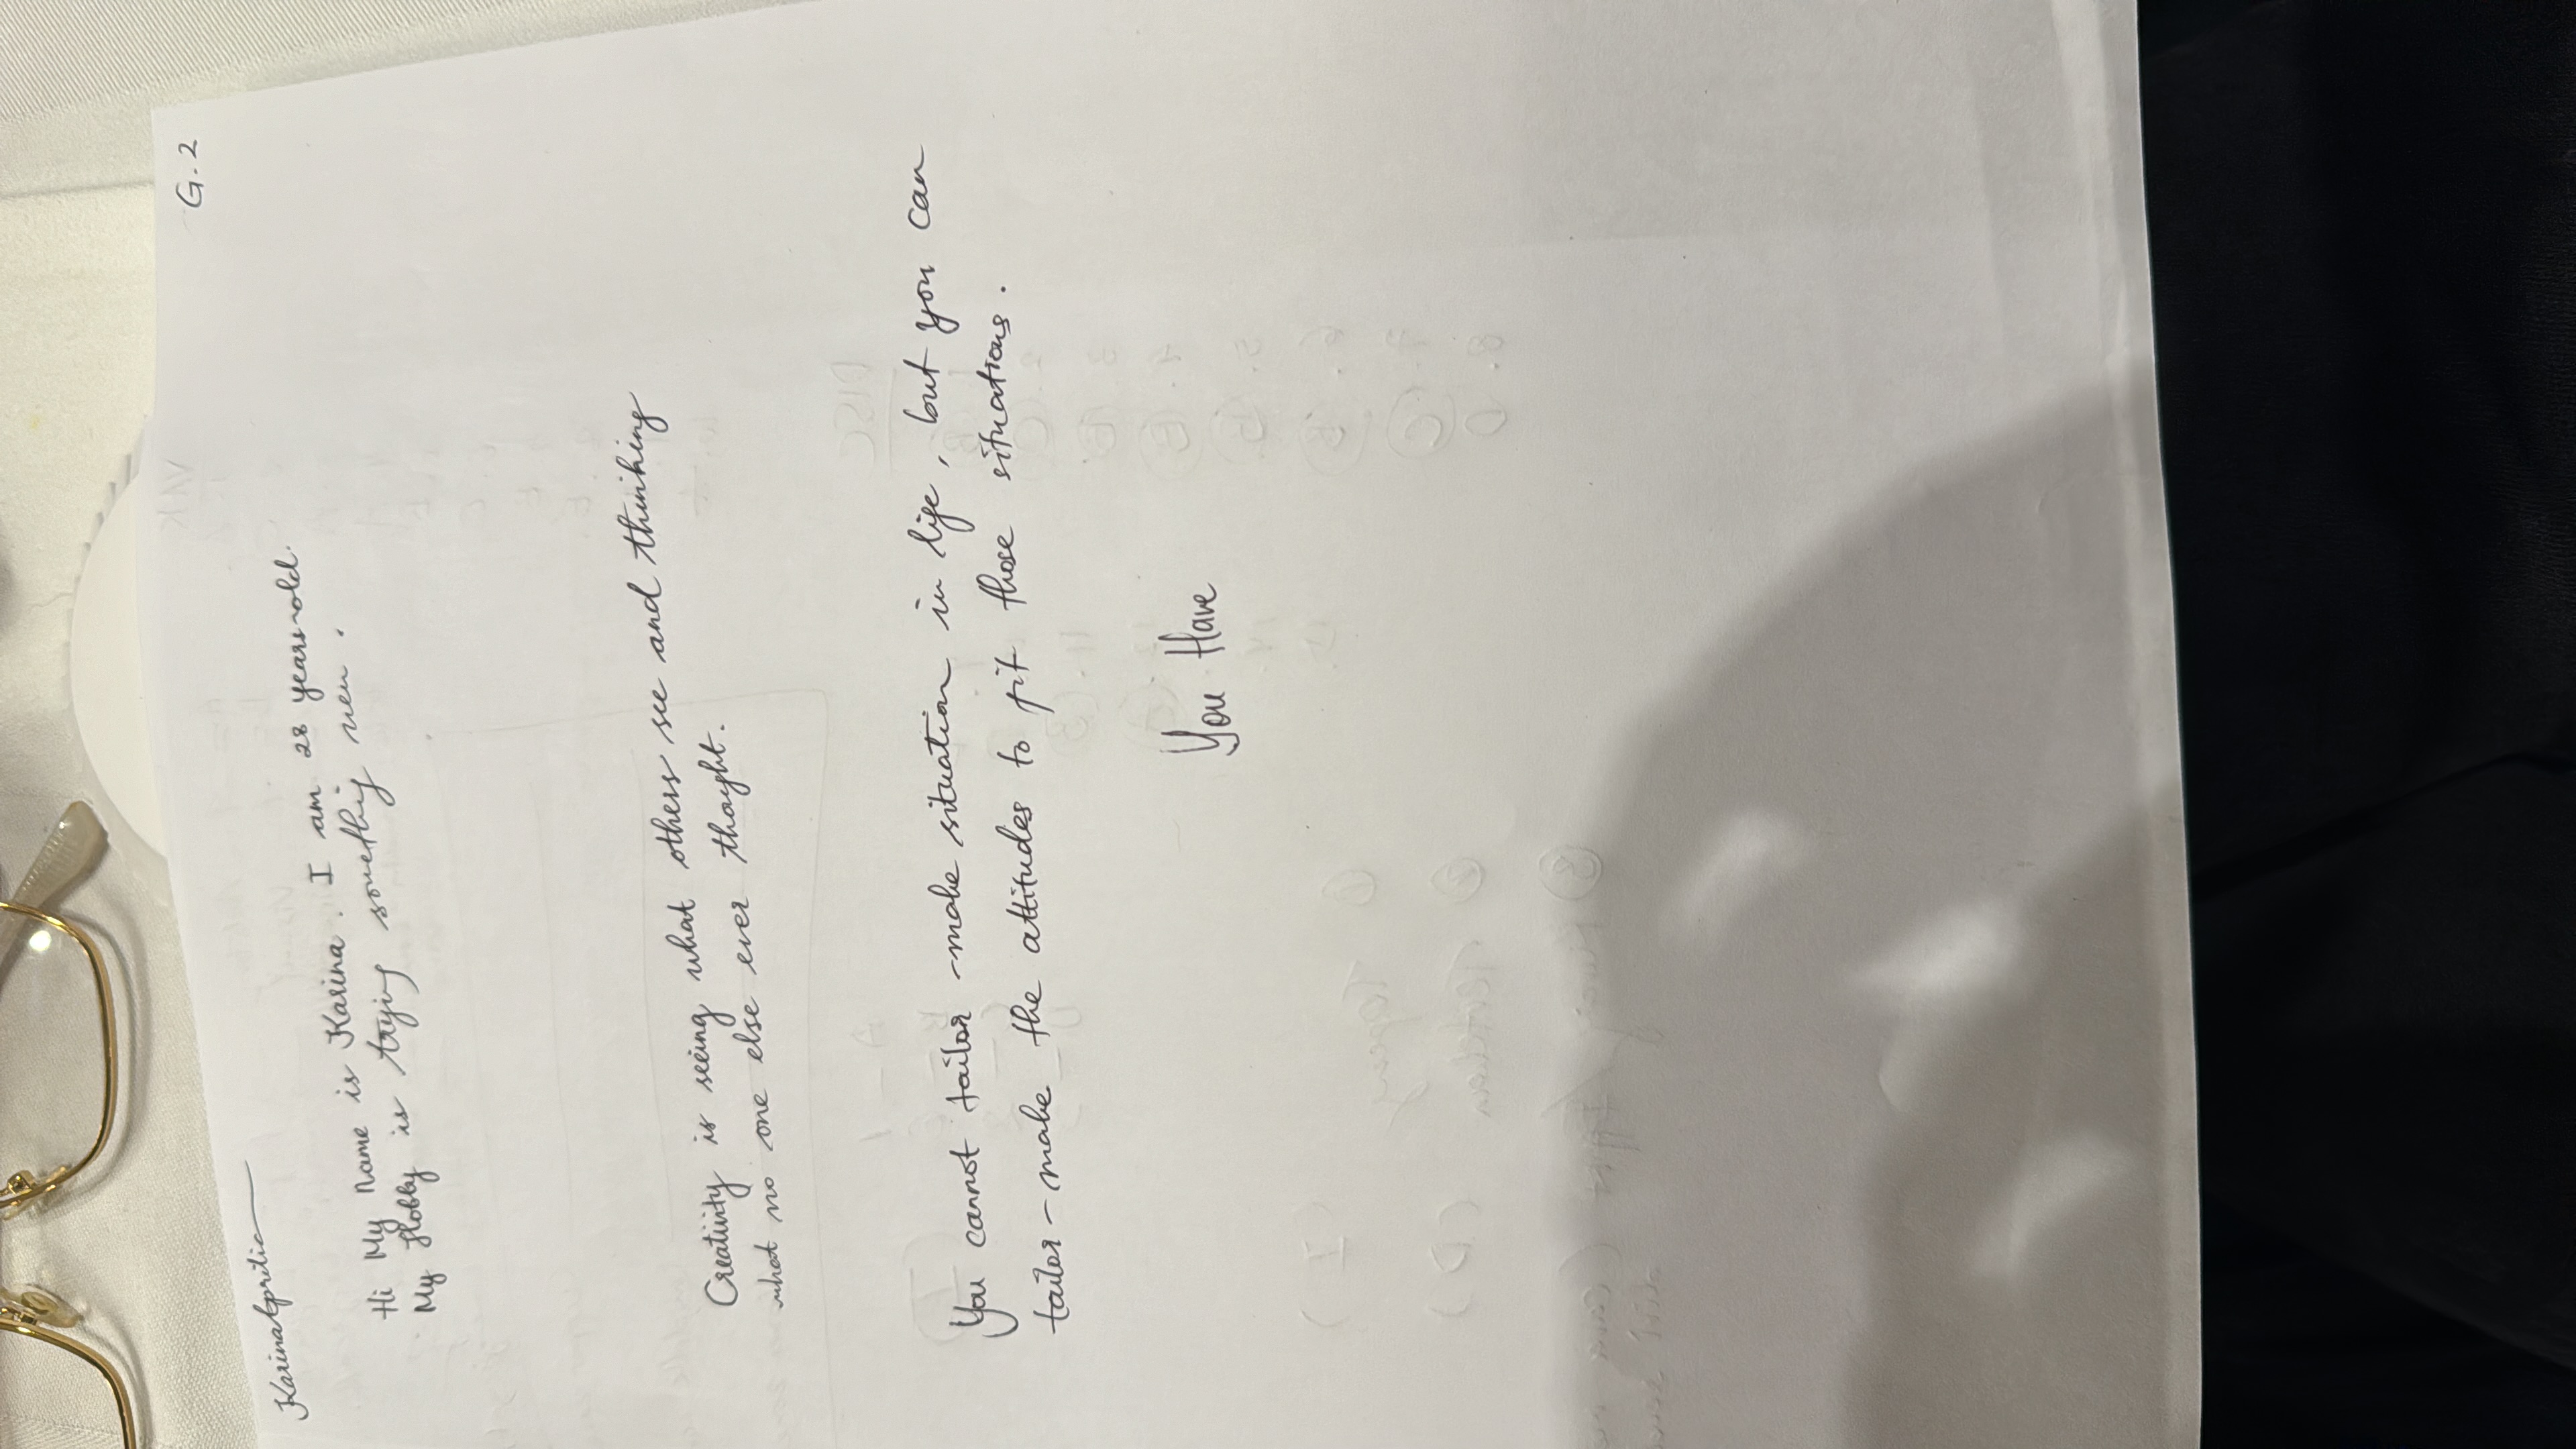 G.2
Karinaapritia
Hi My name is Karina. I am 28 years old.
My Hobby is trying something new.
Creativity is seeing what others see and thinking
what no one else ever thought.
You cannot tailor-make situation in life, but you can
tailor-make the attitudes to fit those situations.
You Have